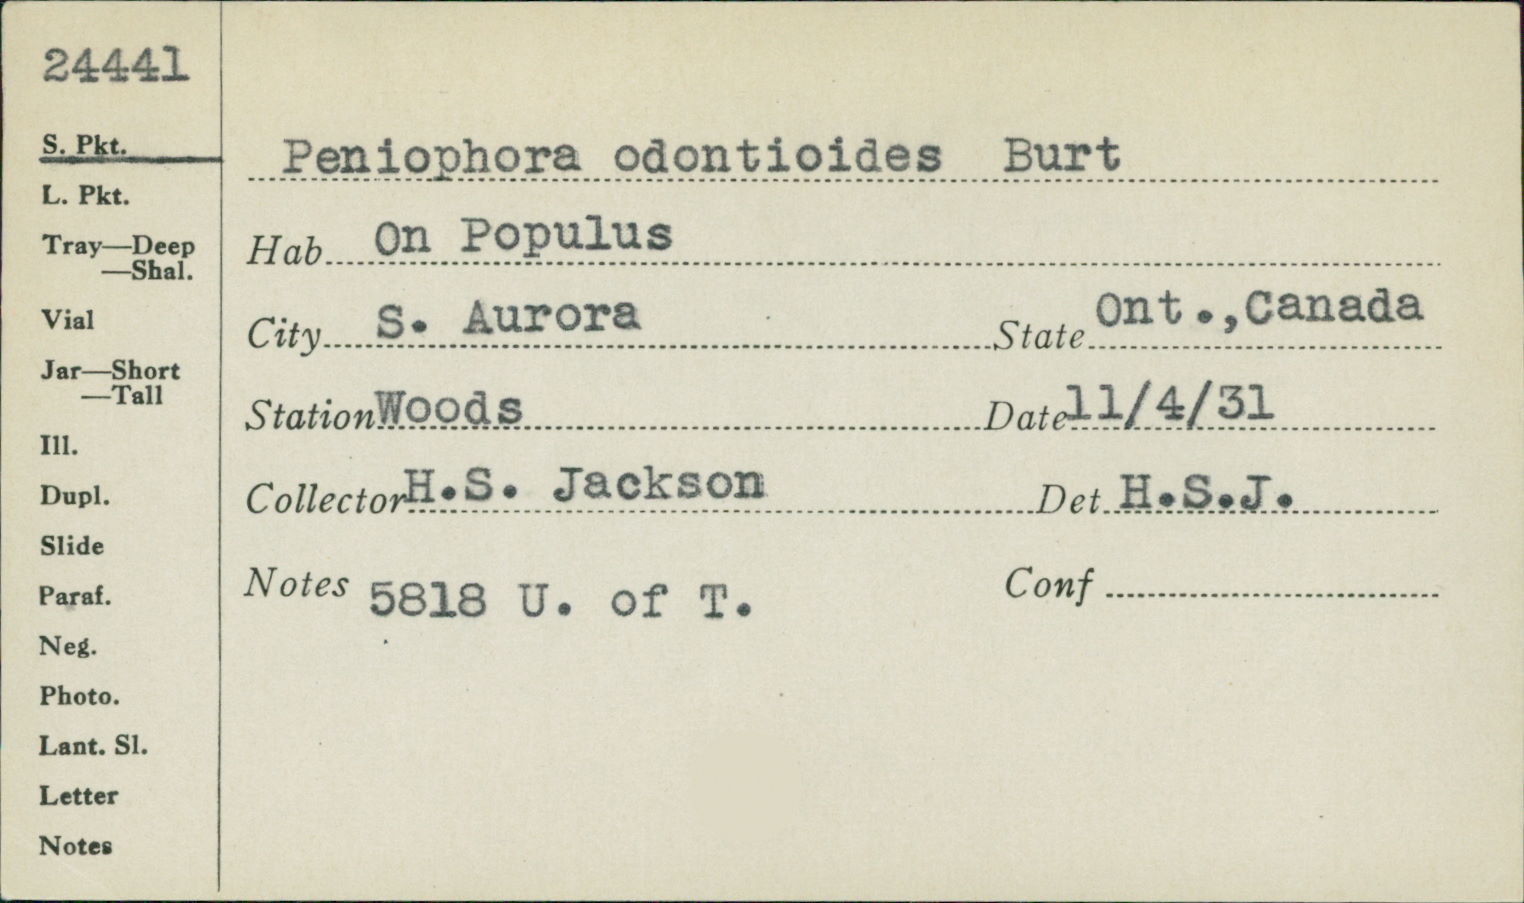 24441
S. Pkt.
L. Pkt.
Tray—Deep
—Shal.
Vial
Jar—Short
—Tall
Ill.
Dupl.
Slide
Paraf.
Neg.
Photo.
Lant. Sl.
Letter
Notes
Peniophora odontioides Burt
Hab On Populus
City S. Aurora State Ont.,Canada
Station Woods Date 11/4/31
Collector H.S. Jackson Det H.S.J.
Notes 5818 U. of T. Conf